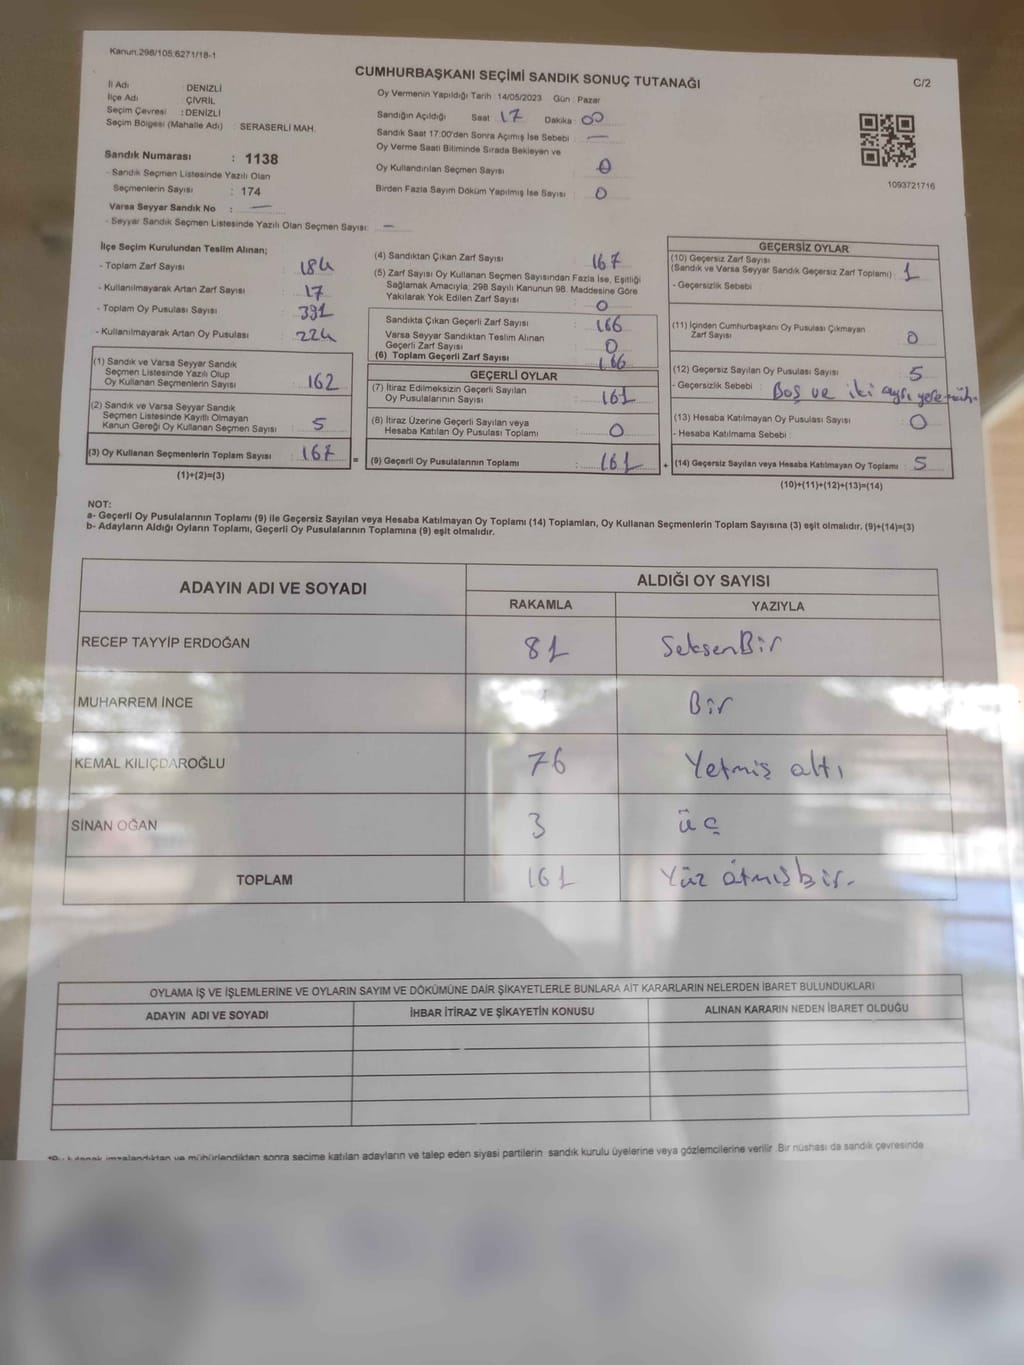 Kanun:298/105;6271/18-1
CUMHURBAŞKANI SEÇİMİ SANDIK SONUÇ TUTANAĞI
C/2
İl Adı : DENİZLİ
İlçe Adı : ÇİVRİL
Seçim Çevresi : DENİZLİ
Seçim Bölgesi (Mahalle Adı) : SERASERLİ MAH.
Sandık Numarası : 1138
- Sandık Seçmen Listesinde Yazılı Olan
Seçmenlerin Sayısı : 174
Varsa Seyyar Sandık No : —
- Seyyar Sandık Seçmen Listesinde Yazılı Olan Seçmen Sayısı: —
Oy Vermenin Yapıldığı Tarih : 14/05/2023 Gün : Pazar
Sandığın Açıldığı Saat : 17 Dakika : 00
Sandık Saat 17:00'den Sonra Açımış İse Sebebi : —
Oy Verme Saati Bitiminde Sırada Bekleyen ve
Oy Kullandırılan Seçmen Sayısı : 0
Birden Fazla Sayım Döküm Yapılmış İse Sayısı : 0
1093721716
İlçe Seçim Kurulundan Teslim Alınan;
- Toplam Zarf Sayısı : 184
- Kullanılmayarak Artan Zarf Sayısı : 17
- Toplam Oy Pusulası Sayısı : 391
- Kullanılmayarak Artan Oy Pusulası : 224
(1) Sandık ve Varsa Seyyar Sandık
Seçmen Listesinde Yazılı Olup
Oy Kullanan Seçmenlerin Sayısı : 162
(2) Sandık ve Varsa Seyyar Sandık
Seçmen Listesinde Kayıtlı Olmayan
Kanun Gereği Oy Kullanan Seçmen Sayısı : 5
(3) Oy Kullanan Seçmenlerin Toplam Sayısı : 167
(1)+(2)=(3)
(4) Sandıktan Çıkan Zarf Sayısı : 167
(5) Zarf Sayısı Oy Kullanan Seçmen Sayısından Fazla İse, Eşitliği
Sağlamak Amacıyla, 298 Sayılı Kanunun 98. Maddesine Göre
Yakılarak Yok Edilen Zarf Sayısı : 0
Sandıkta Çıkan Geçerli Zarf Sayısı : 166
Varsa Seyyar Sandıktan Teslim Alınan
Geçerli Zarf Sayısı : 0
(6) Toplam Geçerli Zarf Sayısı : 166
GEÇERLİ OYLAR
(7) İtiraz Edilmeksizin Geçerli Sayılan
Oy Pusulalarının Sayısı : 161
(8) İtiraz Üzerine Geçerli Sayılan veya
Hesaba Katılan Oy Pusulası Toplamı : 0
= (9) Geçerli Oy Pusulalarının Toplamı : 161 +
GEÇERSİZ OYLAR
(10) Geçersiz Zarf Sayısı
(Sandık ve Varsa Seyyar Sandık Geçersiz Zarf Toplamı) : 1
- Geçersizlik Sebebi :
(11) İçinden Cumhurbaşkanı Oy Pusulası Çıkmayan
Zarf Sayısı : 0
(12) Geçersiz Sayılan Oy Pusulası Sayısı : 5
- Geçersizlik Sebebi : Boş ve iki ayrı yere müh.
(13) Hesaba Katılmayan Oy Pusulası Sayısı : 0
- Hesaba Katılmama Sebebi :
(14) Geçersiz Sayılan veya Hesaba Katılmayan Oy Toplamı : 5
(10)+(11)+(12)+(13)=(14)
NOT:
a- Geçerli Oy Pusulalarının Toplamı (9) ile Geçersiz Sayılan veya Hesaba Katılmayan Oy Toplamı (14) Toplamları, Oy Kullanan Seçmenlerin Toplam Sayısına (3) eşit olmalıdır. (9)+(14)=(3)
b- Adayların Aldığı Oyların Toplamı, Geçerli Oy Pusulalarının Toplamına (9) eşit olmalıdır.
ADAYIN ADI VE SOYADI
ALDIĞI OY SAYISI
RAKAMLA YAZIYLA
RECEP TAYYİP ERDOĞAN 81 SeksenBir
MUHARREM İNCE Bir
KEMAL KILIÇDAROĞLU 76 Yetmiş altı
SİNAN OĞAN 3 üç
TOPLAM 161 Yüz atmışbir.
OYLAMA İŞ VE İŞLEMLERİNE VE OYLARIN SAYIM VE DÖKÜMÜNE DAİR ŞİKAYETLERLE BUNLARA AİT KARARLARIN NELERDEN İBARET BULUNDUKLARI
ADAYIN ADI VE SOYADI İHBAR İTİRAZ VE ŞİKAYETİN KONUSU ALINAN KARARIN NEDEN İBARET OLDUĞU
*Bu tutanak imzalandıktan ve mühürlendikten sonra seçime katılan adayların ve talep eden siyasi partilerin sandık kurulu üyelerine veya gözlemcilerine verilir. Bir nüshası da sandık çevresinde